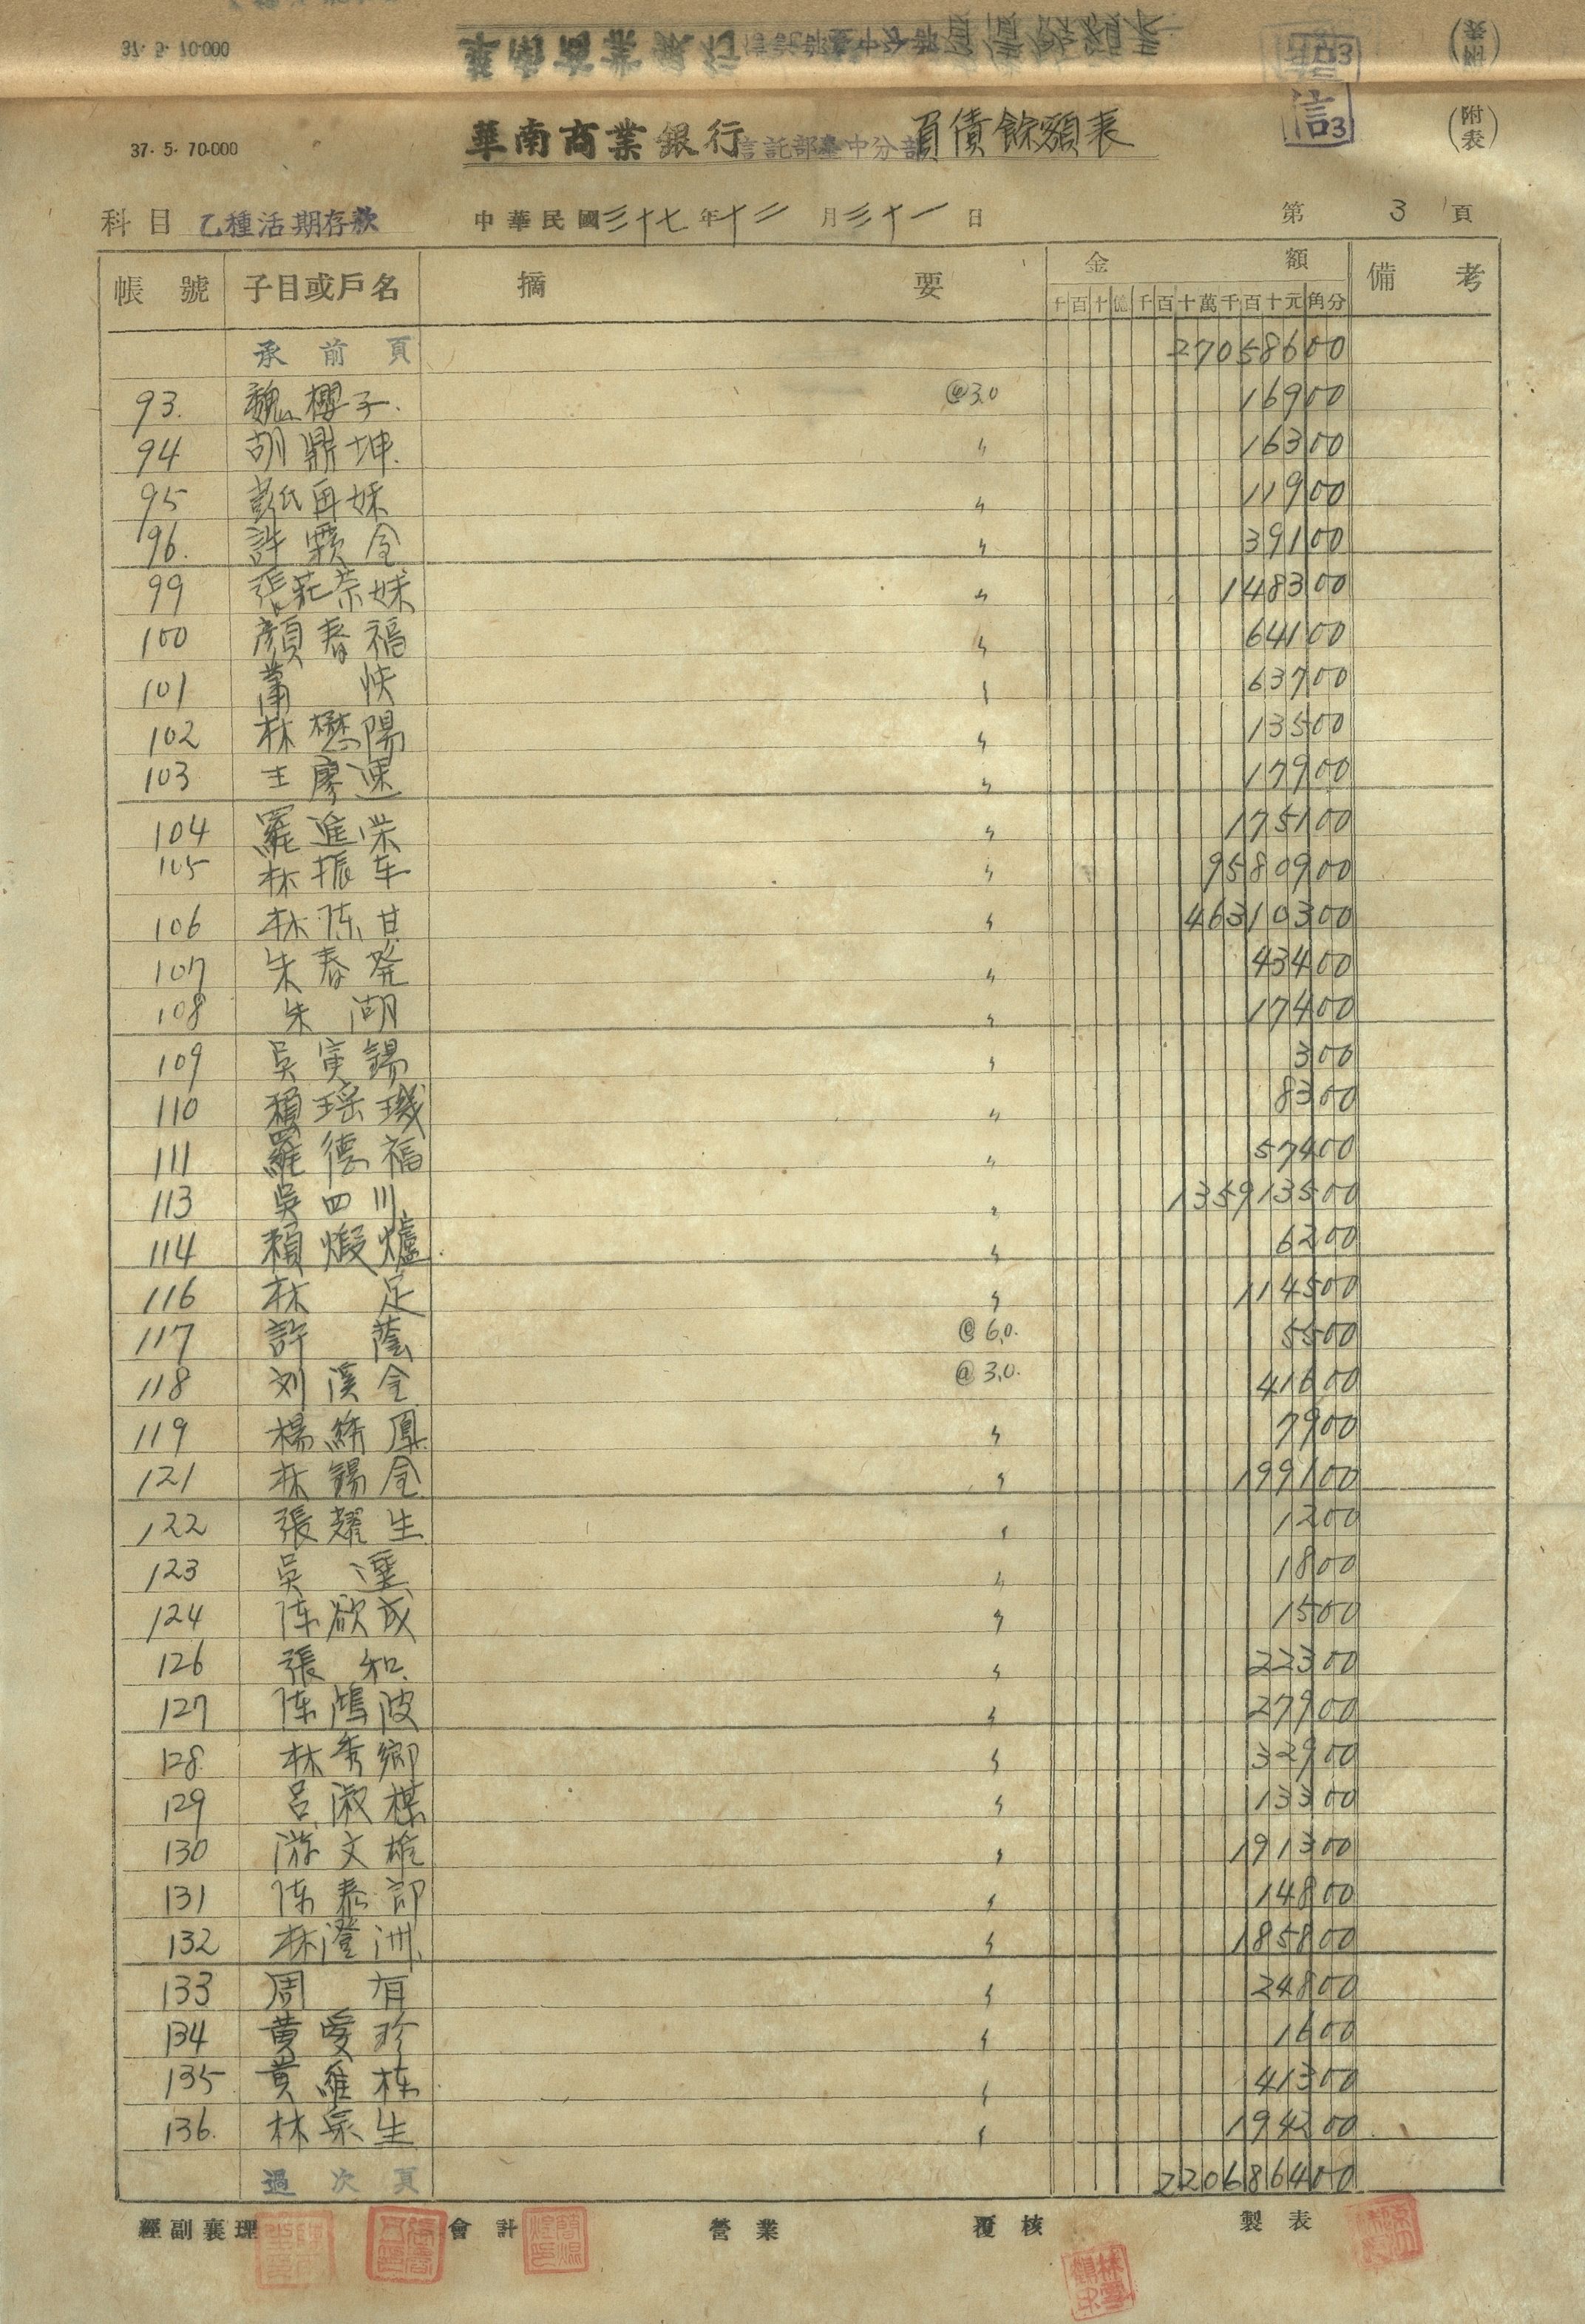 37. 5. 70.000
華南商業銀行信託部臺中分部負債餘額表
信 3
(附表)
科目 乙種活期存款 中華民國三十七年十二月三十一日 第 3 頁
帳號 子目或戶名 摘要 金額 備考
千百十億千百十萬千百十元角分
承前頁 270586 00
93. 魏櫻子. @3.0 169 00
94 胡鼎坤. 〃 163 00
95 彭氏再妹 〃 119 00
96. 許 金 〃 391 00
99 張莊 妹 〃 1483 00
100 顏春福 〃 641 00
101 蕭快 〃 637 00
102 林懋陽 〃 135 00
103 王廖速 〃 179 00
104 羅進荣 〃 1751 00
105 林振车 〃 95809 00
106 林陈甘 〃 463103 00
107 朱春発 〃 434 00
108 朱湖 〃 174 00
109 吳寅錫 〃 3 00
110 賴瑶璣 〃 83 00
111 羅德福 〃 574 00
113 吳四川 〃 1359135 00
114 賴煅爐. 〃 62 00
116 林足 〃 1145 00
117 許蔭 @6.0. 55 00
118 刘溪金 @3.0. 416 00
119 楊 鳳 〃 79 00
121 林錫金 〃 1991 00
122 張耀生 〃 12 00
123 吳 〃 18 00
124 陈欲成 〃 15 00
126 張和 〃 223 00
127 陈鴻波 〃 279 00
128. 林秀鄉 〃 329 00
129 呂淑 〃 133 00
130 游文雄 〃 1913 00
131 陈泰 〃 148 00
132 林澄洲 〃 1858 00
133 周有 〃 248 00
134 黄愛珍 〃 16 00
135 黄維栋 〃 413 00
136. 林泉生 〃 1942 00
過次頁 2206864 00
經副襄理 會計 營業 覆核 製表